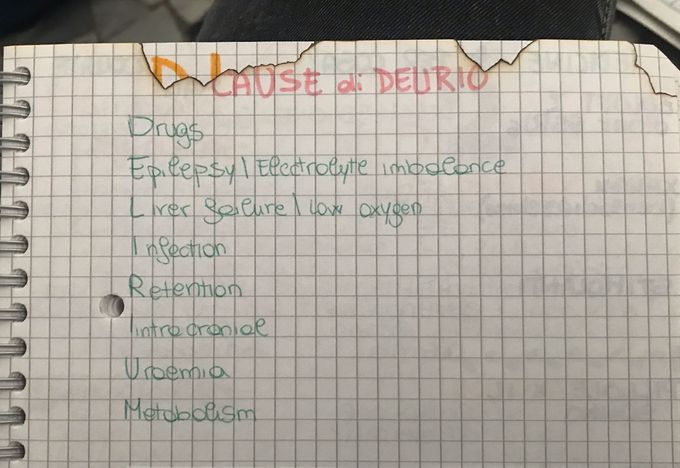 CAUSE di DELIRIO
Drugs
Epilepsy | Electrolyte imbalance
Liver failure | low oxygen
Infection
Retention
Intracranial
Uraemia
Metabolism